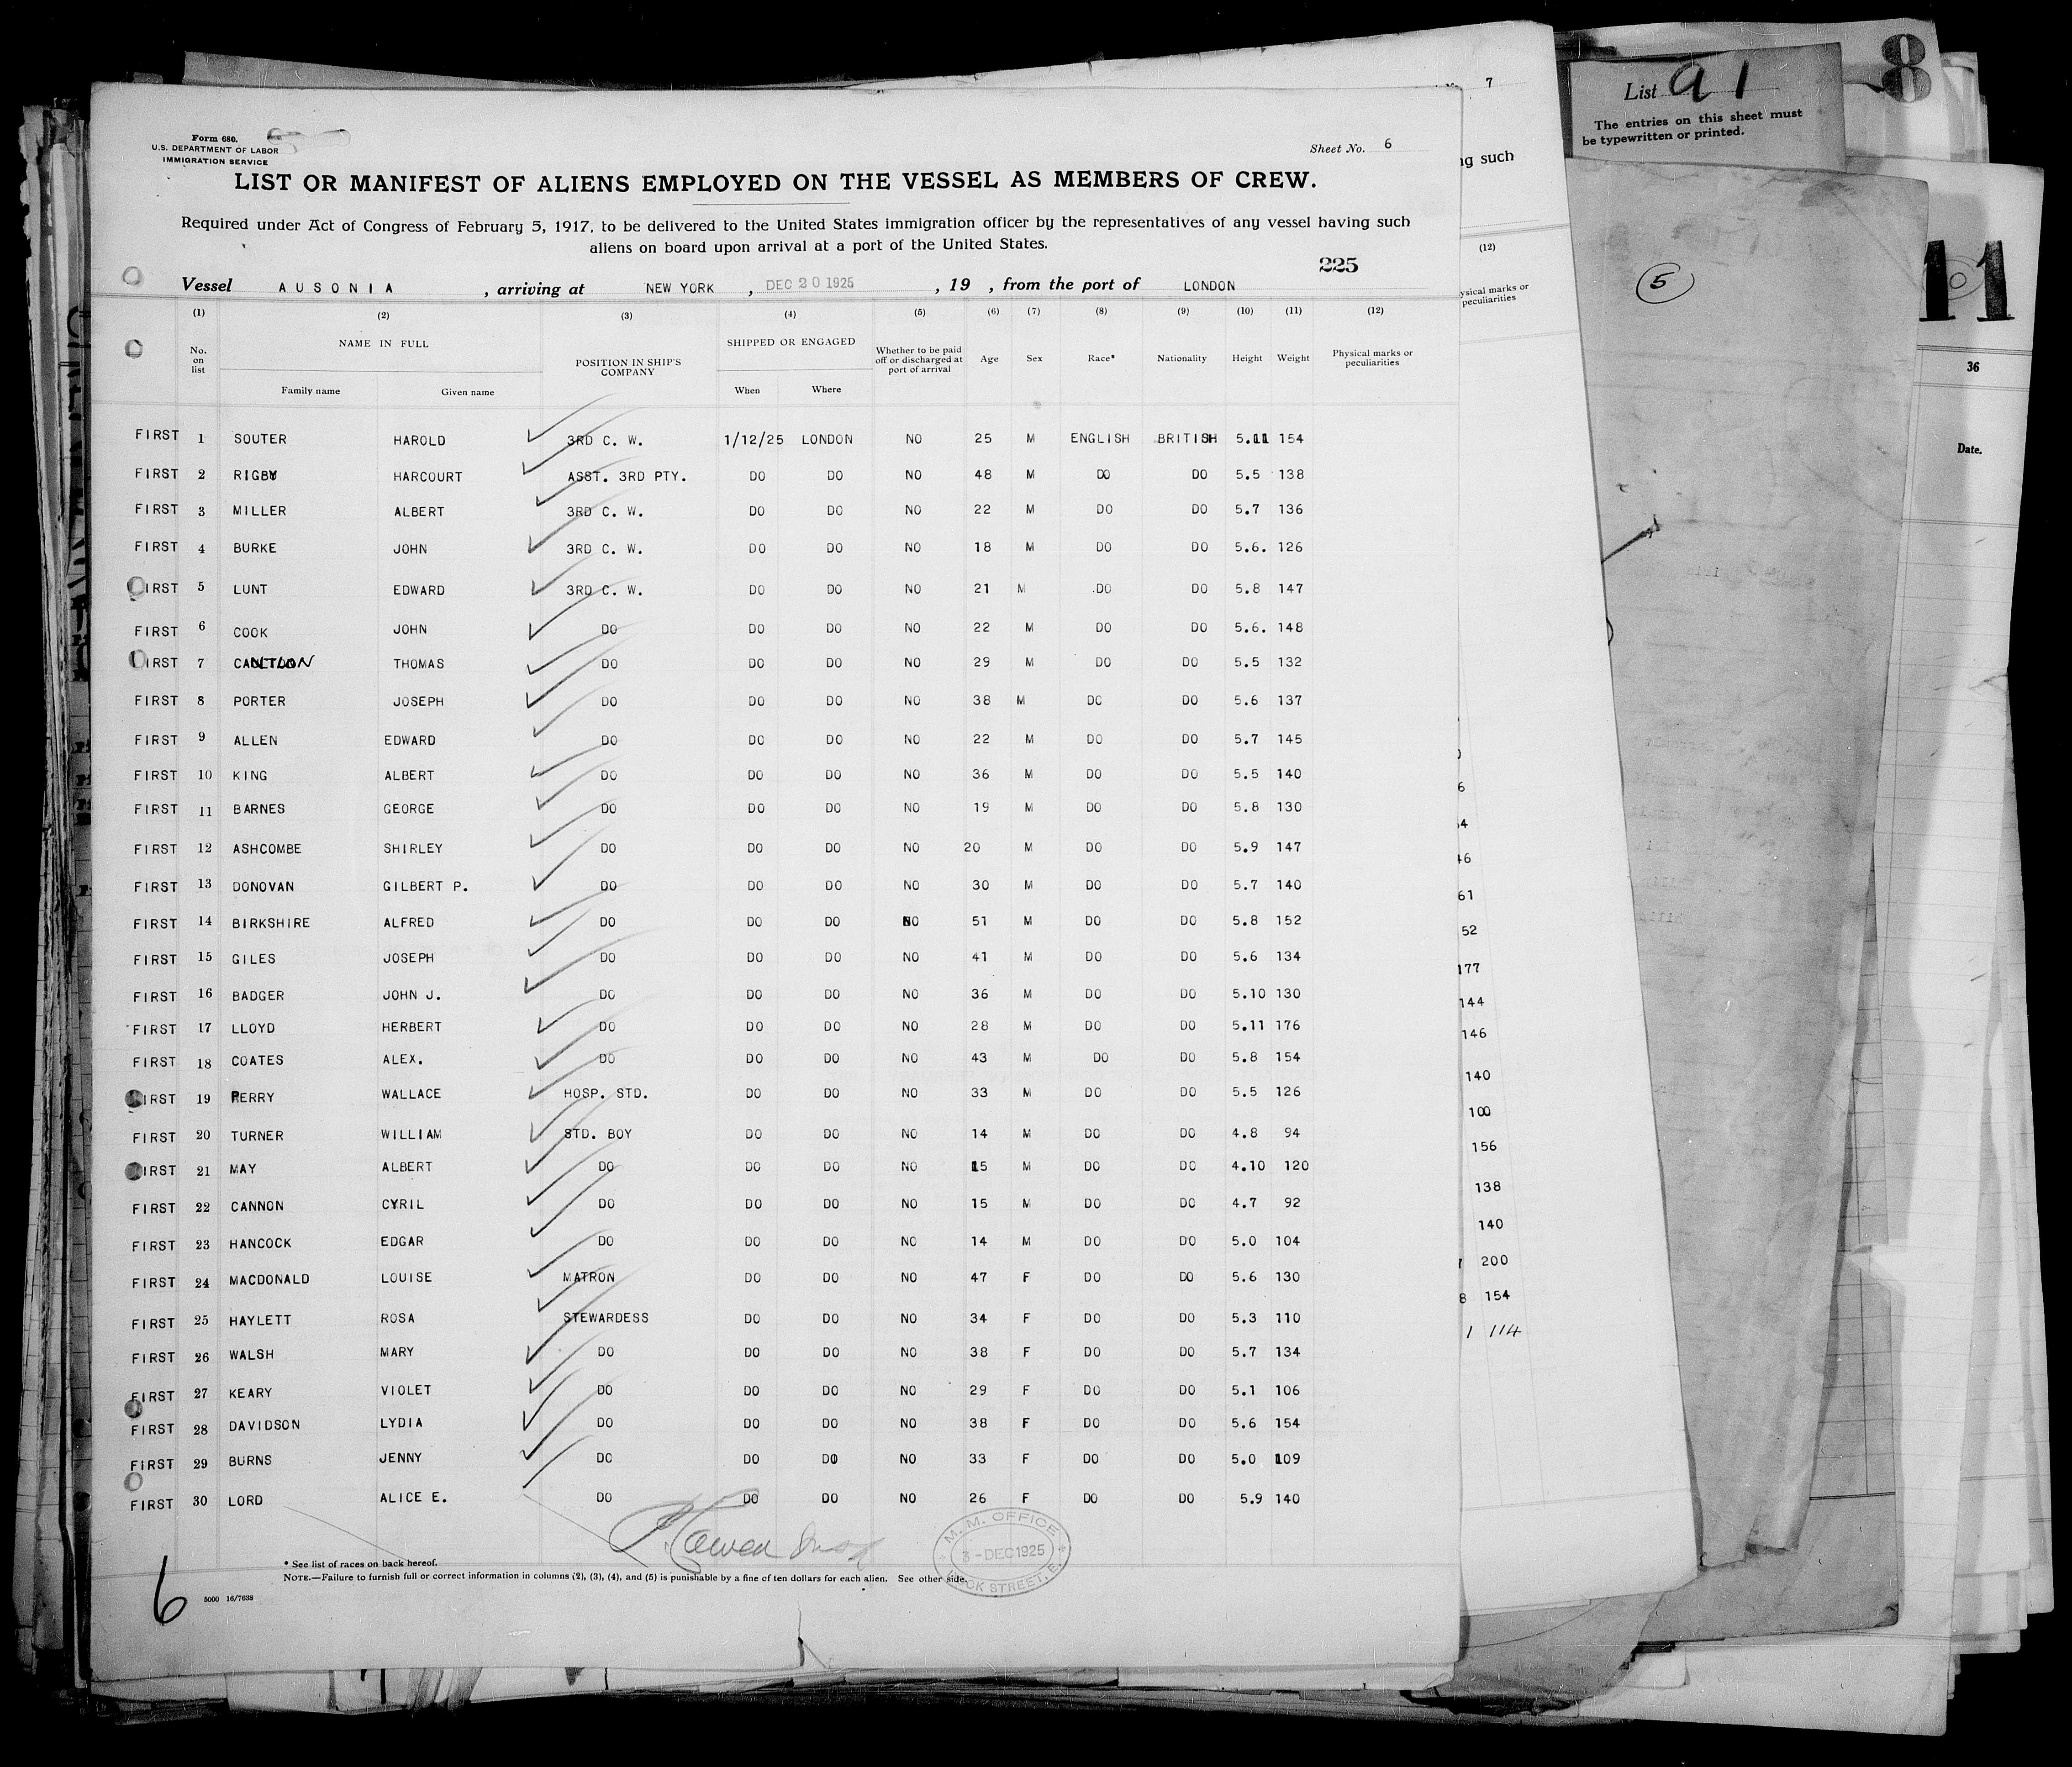 Form 680.
U.S. DEPARTMENT OF LABOR
IMMIGRATION SERVICE
Sheet No. 6
LIST OR MANIFEST OF ALIENS EMPLOYED ON THE VESSEL AS MEMBERS OF CREW.
Required under Act of Congress of February 5, 1917, to be delivered to the United States immigration officer by the representatives of any vessel having such
aliens on board upon arrival at a port of the United States.
225
Vessel AUSONIA, arriving at NEW YORK, DEC 20 1925, 19 , from the port of LONDON
(1) (2) (3) (4) (5) (6) (7) (8) (9) (10) (11) (12)
No. on list NAME IN FULL POSITION IN SHIP'S COMPANY SHIPPED OR ENGAGED Whether to be paid off or discharged at port of arrival Age Sex Race* Nationality Height Weight Physical marks or peculiarities
Family name Given name When Where
FIRST 1 SOUTER HAROLD 3RD C. W. 1/12/25 LONDON NO 25 M ENGLISH BRITISH 5.11 154
FIRST 2 RIGBY HARCOURT ASST. 3RD PTY. DO DO NO 48 M DO DO 5.5 138
FIRST 3 MILLER ALBERT 3RD C. W. DO DO NO 22 M DO DO 5.7 136
FIRST 4 BURKE JOHN 3RD C. W. DO DO NO 18 M DO DO 5.6. 126
FIRST 5 LUNT EDWARD 3RD C. W. DO DO NO 21 M DO DO 5.8 147
FIRST 6 COOK JOHN DO DO DO NO 22 M DO DO 5.6. 148
FIRST 7 THOMAS DO DO DO NO 29 M DO DO 5.5 132
FIRST 8 PORTER JOSEPH DO DO DO NO 38 M DO DO 5.6 137
FIRST 9 ALLEN EDWARD DO DO DO NO 22 M DO DO 5.7 145
FIRST 10 KING ALBERT DO DO DO NO 36 M DO DO 5.5 140
FIRST 11 BARNES GEORGE DO DO DO NO 19 M DO DO 5.8 130
FIRST 12 ASHCOMBE SHIRLEY DO DO DO NO 20 M DO DO 5.9 147
FIRST 13 DONOVAN GILBERT P. DO DO DO NO 30 M DO DO 5.7 140
FIRST 14 BIRKSHIRE ALFRED DO DO DO NO 51 M DO DO 5.8 152
FIRST 15 GILES JOSEPH DO DO DO NO 41 M DO DO 5.6 134
FIRST 16 BADGER JOHN J. DO DO DO NO 36 M DO DO 5.10 130
FIRST 17 LLOYD HERBERT DO DO DO NO 28 M DO DO 5.11 176
FIRST 18 COATES ALEX. DO DO DO NO 43 M DO DO 5.8 154
FIRST 19 PERRY WALLACE HOSP. STD. DO DO NO 33 M DO DO 5.5 126
FIRST 20 TURNER WILLIAM STD. BOY DO DO NO 14 M DO DO 4.8 94
FIRST 21 MAY ALBERT DO DO DO NO 15 M DO DO 4.10 120
FIRST 22 CANNON CYRIL DO DO DO NO 15 M DO DO 4.7 92
FIRST 23 HANCOCK EDGAR DO DO DO NO 14 M DO DO 5.0 104
FIRST 24 MACDONALD LOUISE MATRON DO DO NO 47 F DO DO 5.6 130
FIRST 25 HAYLETT ROSA STEWARDESS DO DO NO 34 F DO DO 5.3 110
FIRST 26 WALSH MARY DO DO DO NO 38 F DO DO 5.7 134
FIRST 27 KEARY VIOLET DO DO DO NO 29 F DO DO 5.1 106
FIRST 28 DAVIDSON LYDIA DO DO DO NO 38 F DO DO 5.6 154
FIRST 29 BURNS JENNY DO DO DO NO 33 F DO DO 5.0 109
FIRST 30 LORD ALICE E. DO DO DO NO 26 F DO DO 5.9 140
M. M. OFFICE
3 - DEC 1925
DOCK STREET. E.
* See list of races on back hereof.
NOTE.—Failure to furnish full or correct information in columns (2), (3), (4), and (5) is punishable by a fine of ten dollars for each alien. See other side.
5000 16/7638
6
7
ng such
(12)
ysical marks or
peculiarities
6
61
52
177
144
146
140
100
156
138
140
200
8 154
1 114
List 91
The entries on this sheet must
be typewritten or printed.
8
5
11
36
Date.